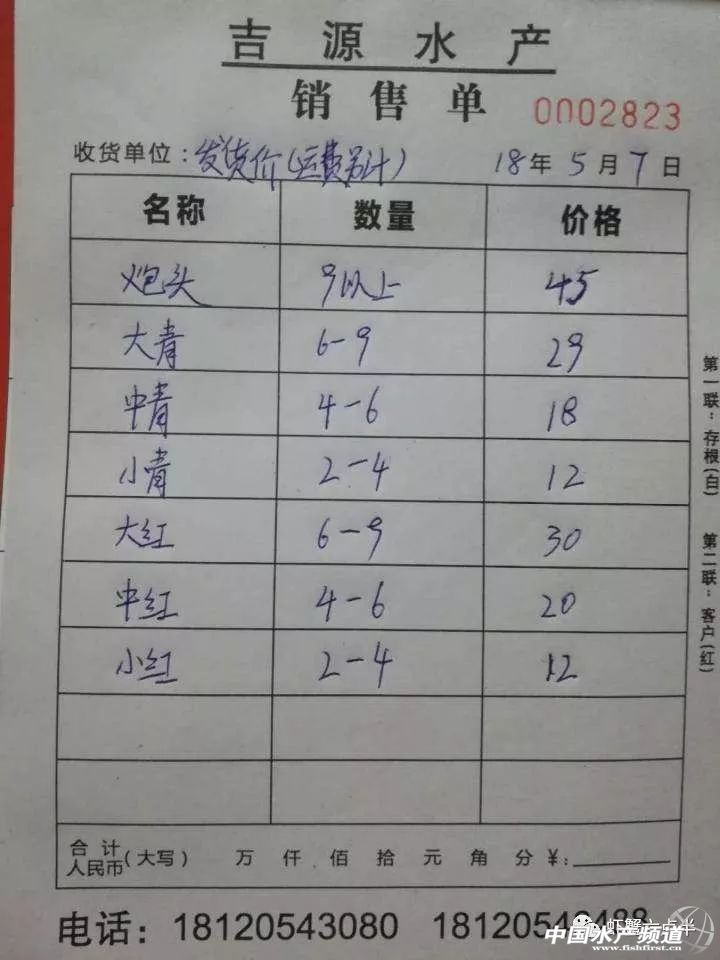 吉源水产
销售单 0002823
收货单位：发货价(运费另计) 18年5月7日
名称 数量 价格
炮头 9以上 45
大青 6-9 29
中青 4-6 18
小青 2-4 12
大红 6-9 30
中红 4-6 20
小红 2-4 12
合计人民币(大写) 万仟佰拾元角分￥:
第一联：存根(白) 第二联：客户(红)
电话：18120543080
虾蟹六点半
中国水产频道
www.fishfirst.cn